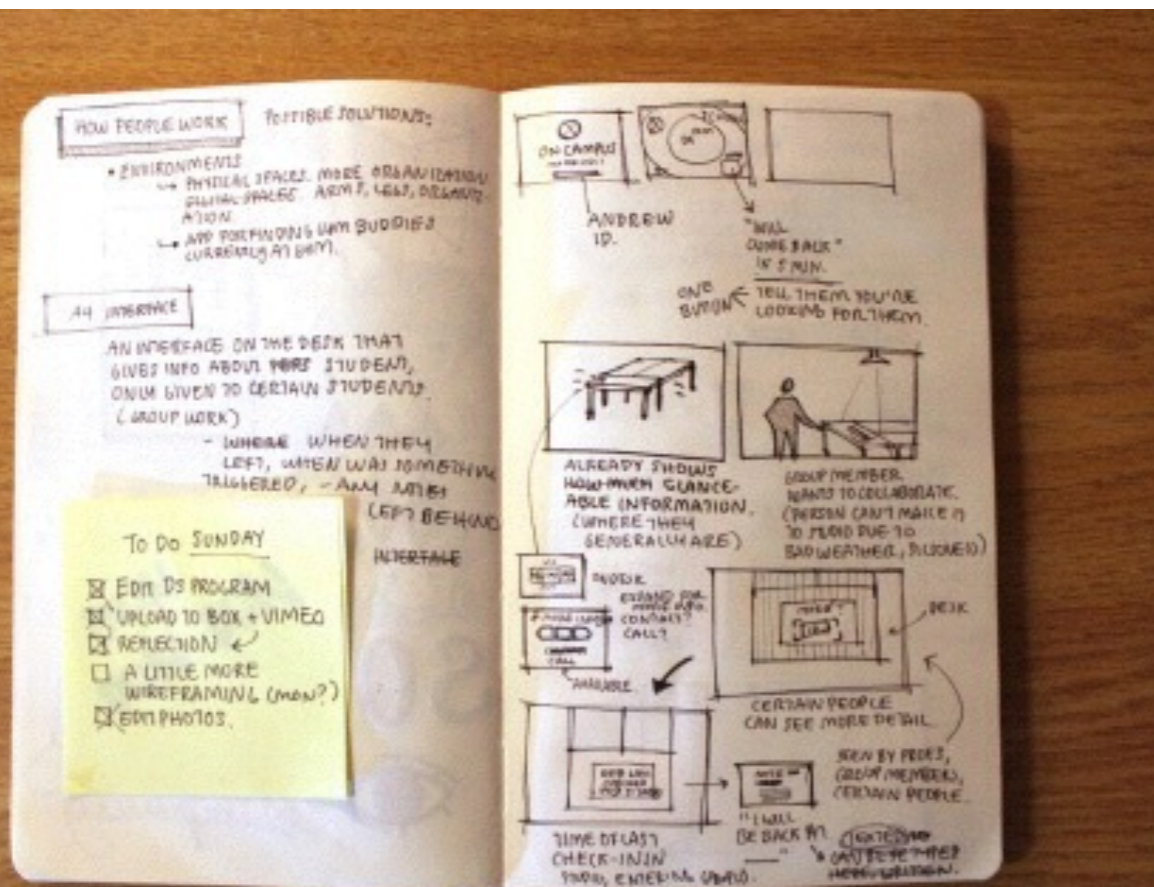 HOW PEOPLE WORK
POSSIBLE SOLUTIONS:
• ENVIRONMENTS
↳ PHYSICAL SPACES. MORE ORGANIZATION
DIGITAL SPACES. ARMS, LEGS, ORGANIZ-
ATION.
↳ APP FOR FINDING GYM BUDDIES
CURRENTLY AT GYM.
INTERFACE
AN INTERFACE ON THE DESK THAT
GIVES INFO ABOUT STUDENT,
ONLY GIVEN TO CERTAIN STUDENTS.
(GROUP WORK)
- WHERE WHEN THEY
LEFT, WHEN WAS SOMETHING
TRIGGERED, - ANY NOTES
LEFT BEHIND
INTERFACE
TO DO SUNDAY
☒ EDIT DS PROGRAM
☒ UPLOAD TO BOX + VIMEO
☒ REFLECTION
☐ A LITTLE MORE
WIREFRAMING (MON?)
☒ EDIT PHOTOS.
ON CAMPUS
ANDREW
ID.
"WILL
COME BACK"
IN 5 MIN.
ONE
BUTTON
TELL THEM YOU'RE
LOOKING FOR THEM.
ALREADY SHOWS
HOW MUCH GLANCE-
ABLE INFORMATION.
(WHERE THEY
GENERALLY ARE)
GROUP MEMBER
WANTS TO COLLABORATE.
(PERSON CAN'T MAKE IT
TO STUDIO DUE TO
BAD WEATHER, SICKNESS)
ON DESK
EXPAND FOR
MORE INFO.
CONTACT?
CALL?
CALL
AVAILABLE
DESK
CERTAIN PEOPLE
CAN SEE MORE DETAIL
SEEN BY PROFS,
GROUP MEMBERS,
CERTAIN PEOPLE.
NOTE
TIME OF LAST
CHECK-IN IN
STUDIO, ENTERING
"I WILL
BE BACK AT
___"
CAN BE TYPED